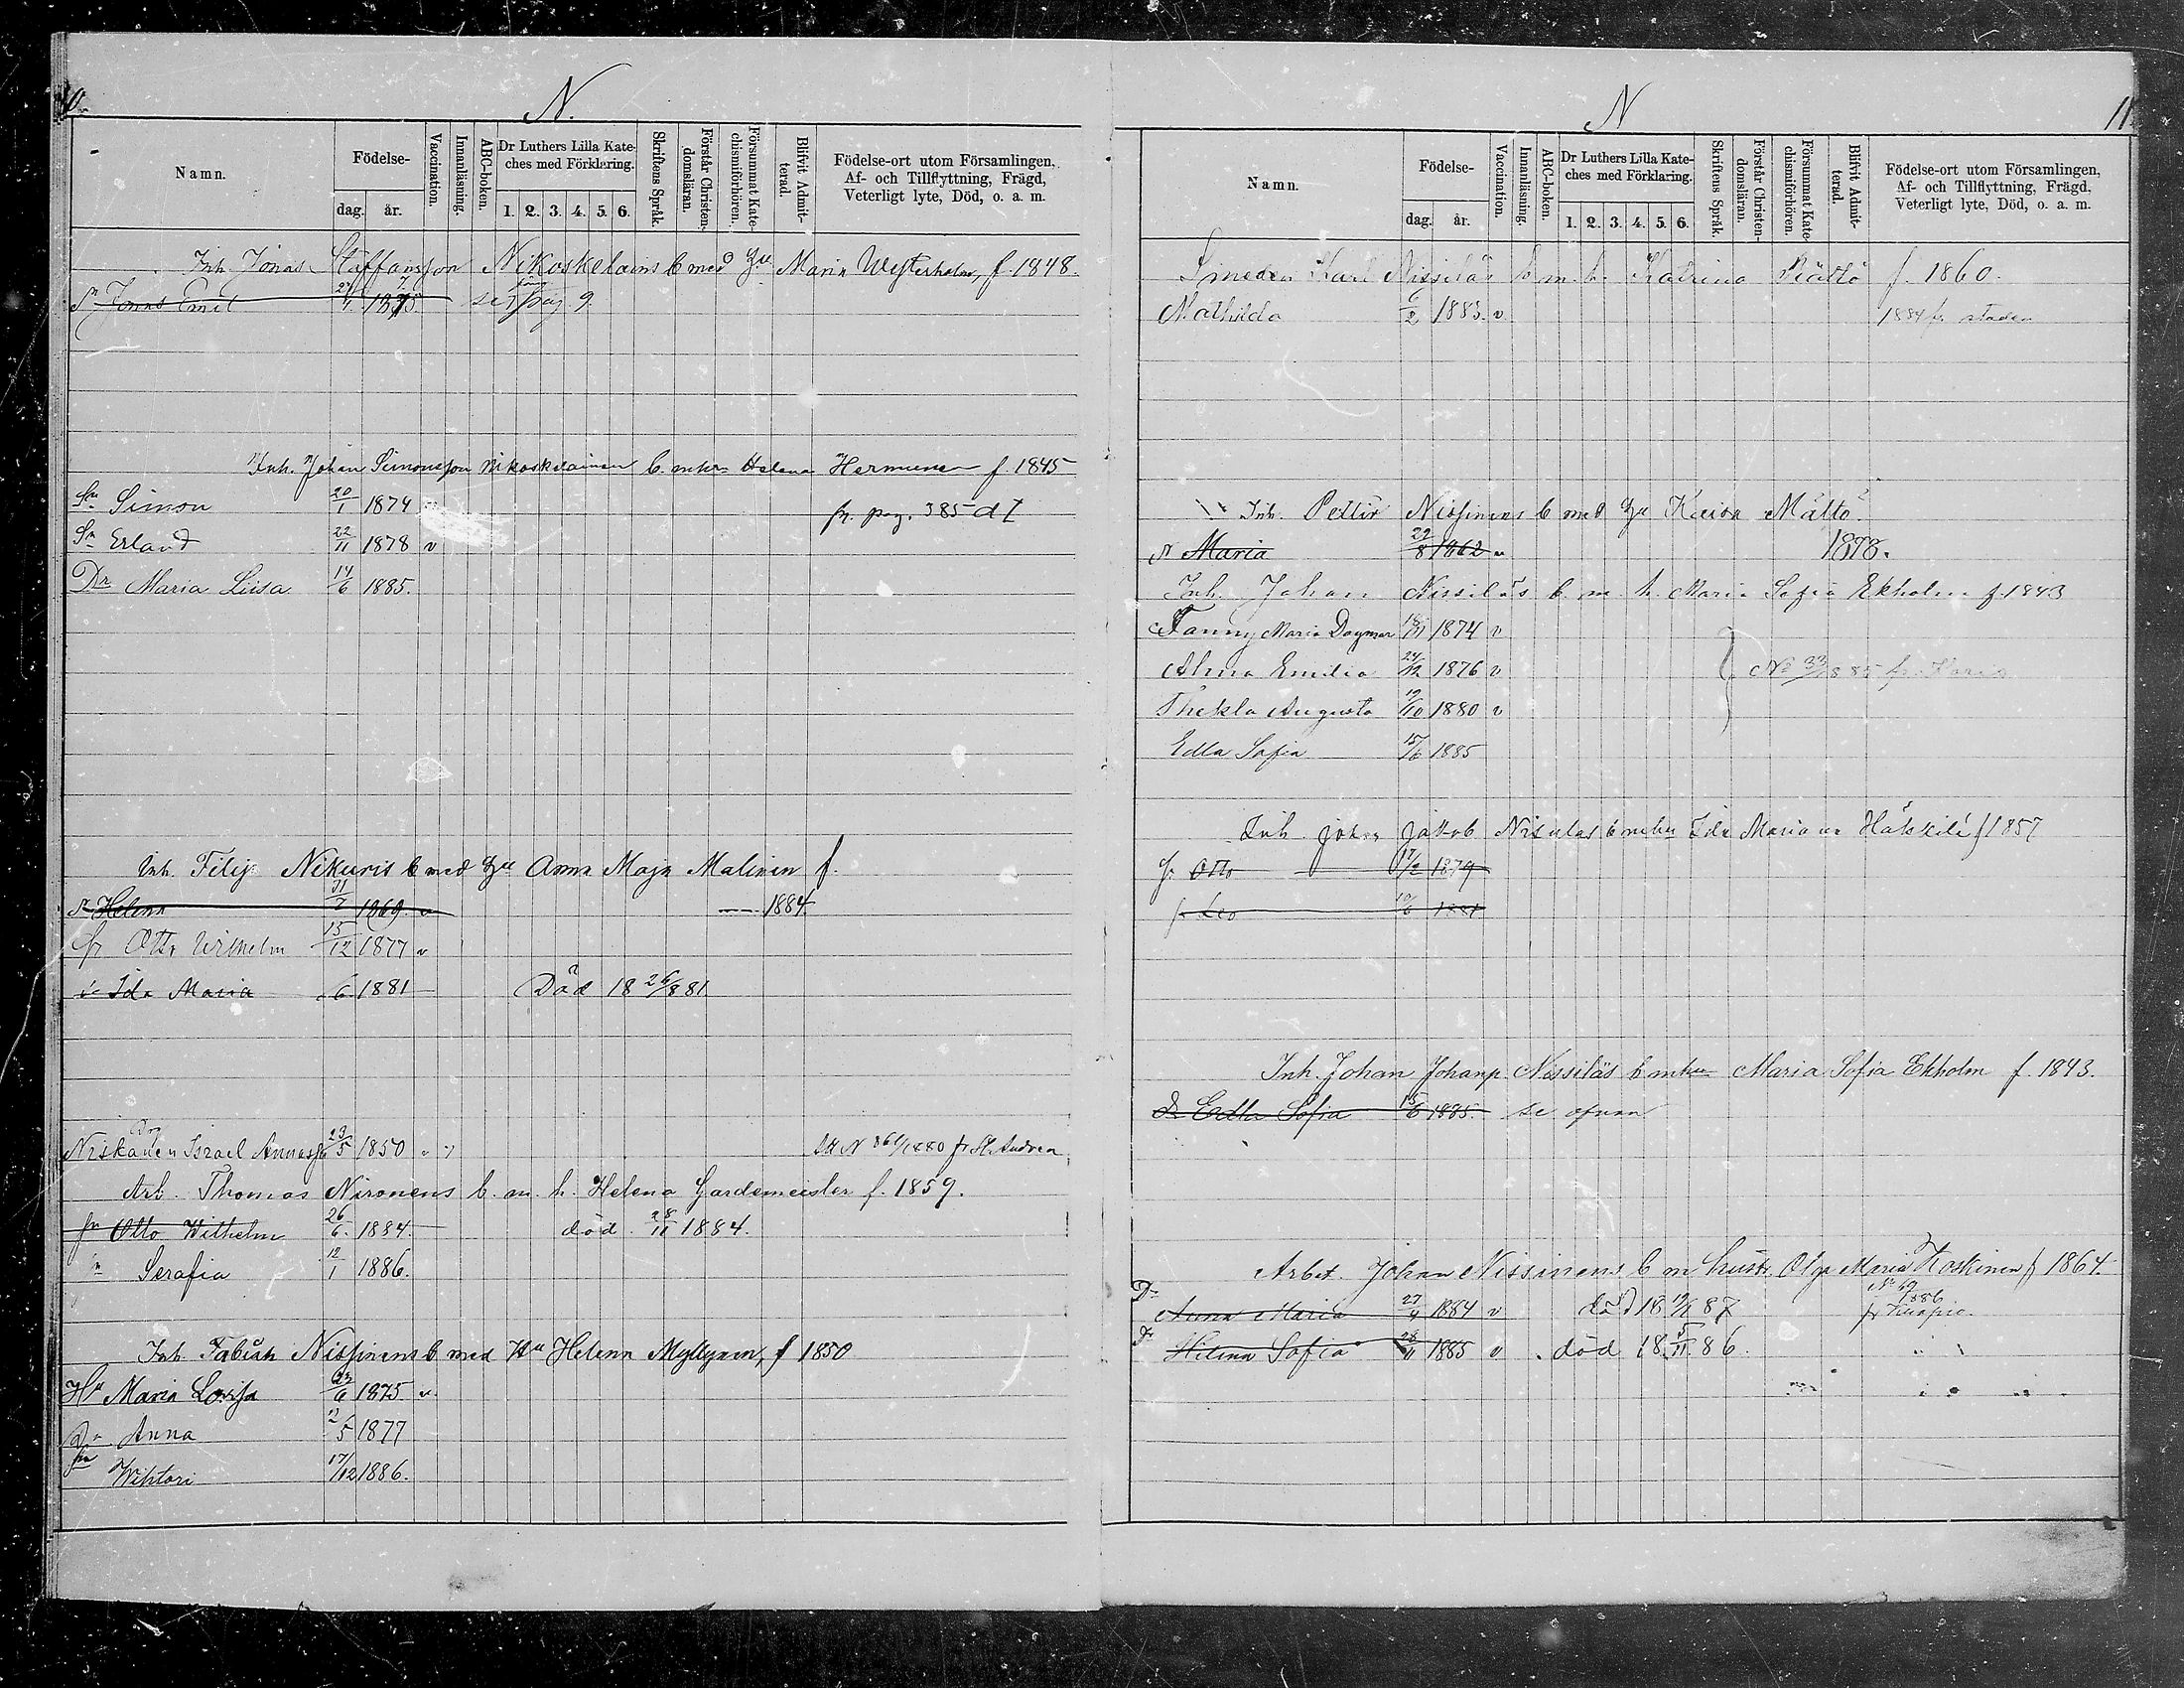 10.
N.
Namn.
Födelse-
dag. år.
Vaccination.
Innanläsning.
ABC-boken.
Dr Luthers Lilla Kate-
ches med Förklaring.
1. 2. 3. 4. 5. 6.
Skriftens Språk.
Förstår Christen-
domsläran.
Försummat Kate-
chismiförhören.
Blifvit Admit-
terad.
Födelse-ort utom Församlingen,
Af- och Tillflyttning, Frägd,
Veterligt lyte, Död, o. a. m.
Inh. Jonas Staffansson Nikoskelains b med Hu Maria Westerholm, f. 1848.
Sn Jonas Emil 1875 se pag. 9.
Inh. Johan Simonsson Nikoskelainen b. m hu Helena Hermunen f 1845
Sn Simon 20/1 1874 fr. pag. 385 d I
Sn Erland 22/11 1878 v
Dr Maria Liisa 14/6 1885.
Inh. Filip Nikuris b med Hu Anna Maja Malinen f.
Helena 31/7 1869 v 1884.
Otto Wilhelm 15/12 1877 v
Ida Maria 6 1881 Död 18 26/8 81
Niskanen Israel 23/5 1850 1880 fr St. Andrea
Arb. Thomas Nironens b. m. h. Helena Gardemeister f. 1859.
Otto Wilhelm 26/6. 1884. död 28/11 1884.
Serafia 12/1 1886.
Inh. Fabian Nissinens b med Hu Helena Myllynen, f 1850
Maria Lovisa 23/6 1875 v.
Anna 2/5 1877
Wiktori 17/12 1886.
N
11.
Namn.
Födelse-
dag. år.
Vaccination.
Innanläsning.
ABC-boken.
Dr Luthers Lilla Kate-
ches med Förklaring.
1. 2. 3. 4. 5. 6.
Skriftens Språk.
Förstår Christen-
domsläran.
Försummat Kate-
chismiförhören.
Blifvit Admit-
terad.
Födelse-ort utom Församlingen,
Af- och Tillflyttning, Frägd,
Veterligt lyte, Död, o. a. m.
Smeden Karl Nissiläs b. m. h. Katrina Rättö f. 1860.
Mathilda 6/2 1883. v 1884 fr staden
Inh. Petter Nissinens b med Hu Kaisa Mättö
Maria 22/8 1862 v 1878.
Inh. Johan Nissiläs b. m. h. Maria Sofia Ekholm f. 1843
Fanny Maria Dagmar 1874 v
Alma Emilia 24/12 1876 v
Thekla Augusta 19/10 1880 v
Edla Sofia 15/6 1885
Inh. Johan Jakob b m hu Ida Maria f 1857
Otto 17/2 1879
Leo 10/6 1881
Inh. Johan Johansp. Nissiläs b m hu Maria Sofia Ekholm f. 1843.
D Edla Sofia 15/6 1885. se ofvan
Arbet. Johan Nissinens b m hustr. Olga Maria Koskinen f 1864.
Dr Anna Maria 27/4 1884 v död 18 19/1 87 1886 fr Kuopio.
Dr Hilma Sofia 1885 v död 18 5/11 86.